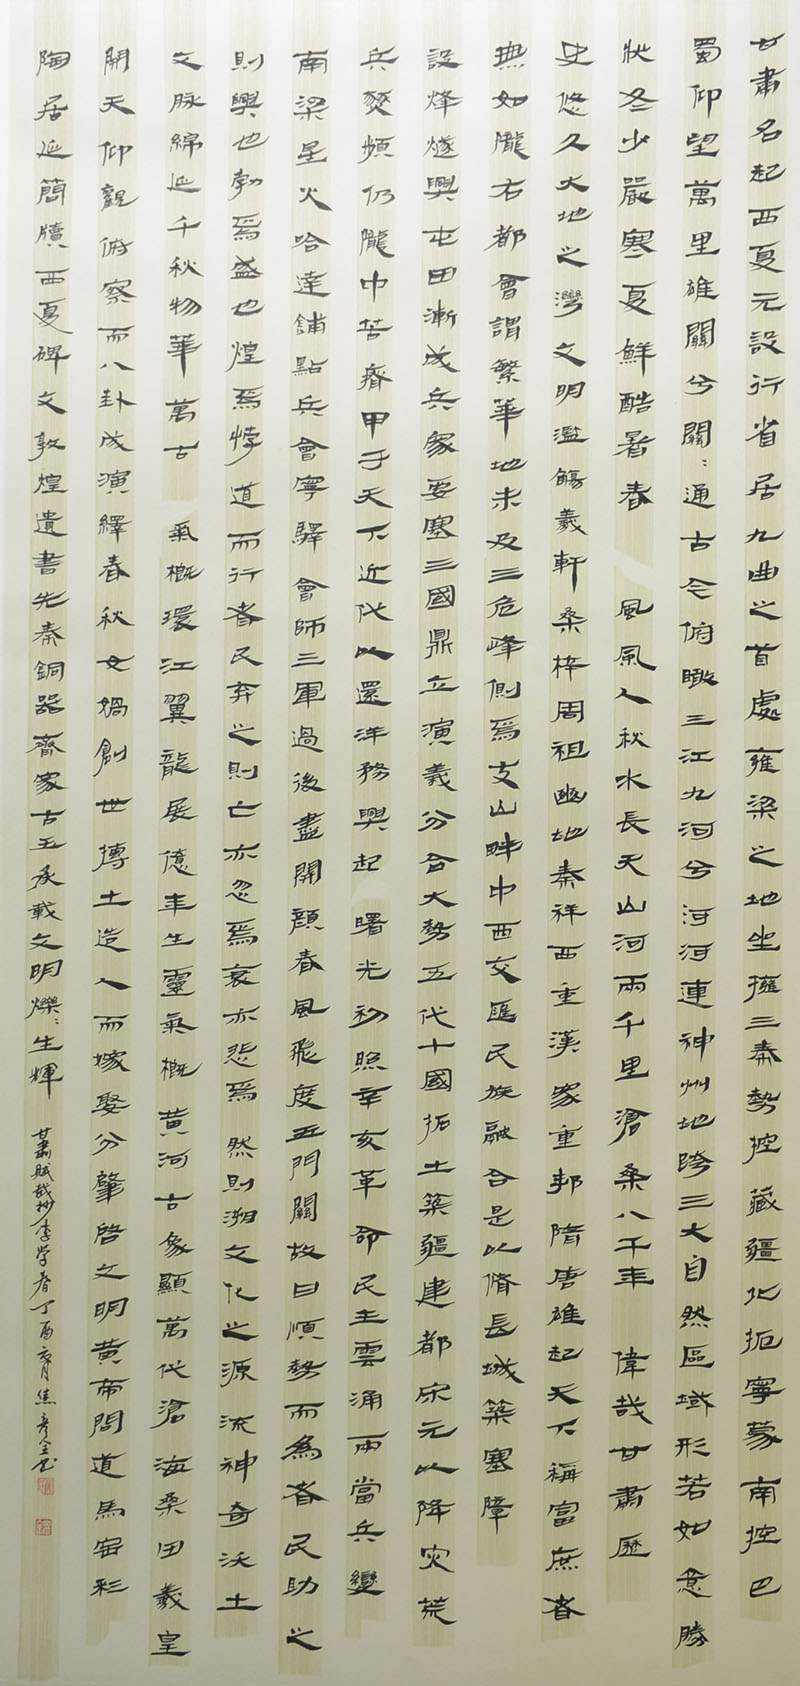 甘肅名起西夏元設行省居九曲之首處雍梁之地坐擁三秦勢控藏疆北扼寧蒙南控巴
蜀仰望萬里雄關兮關〻通古今俯瞰三江九河兮河河連神州地跨三大自然區域形若如意勝
狀冬少嚴寒夏鮮酷暑春風風人秋水長天山河兩千里滄桑八千年偉哉甘肅歷
史悠久大地之灣文明濫觴羲軒桑梓周祖幽地秦祥西垂漢家重邦隋唐雄起天下稱富庶者
無如隴右都會謂繁華地未及三危峰側焉支山畔中西交匯民族融合是以脩長城築塞障
設烽燧興屯田漸成兵家要塞三國鼎立演義分合大勢五代十國拓土築疆建都宋元以降灾荒
兵燹頻仍隴中苦瘠甲于天下近代以還洋務興起曙光初照辛亥革命民主雲涌兩當兵變
南梁星火哈達鋪點兵會寧驛會師三軍過後盡開顏春風飛度玉門關故曰順勢而為者民助之
則興也勃焉盛也煌焉悖道而行者民弃之則亡亦忽焉哀亦悲焉然則溯文化之源流神奇沃土
文脉綿延千秋物華萬古氣概環江翼龍展億年生靈氣概黃河古象顯萬代滄海桑田羲皇
開天仰觀俯察而八卦成演繹春秋女媧創世摶土造人而嫁娶分肇啓文明黃帝問道馬窑彩
陶居延簡牘西夏碑文敦煌遺書先秦銅器齊家古玉承載文明爍〻生輝
甘肅賦截抄李学春丁酉亥月焦彦全书